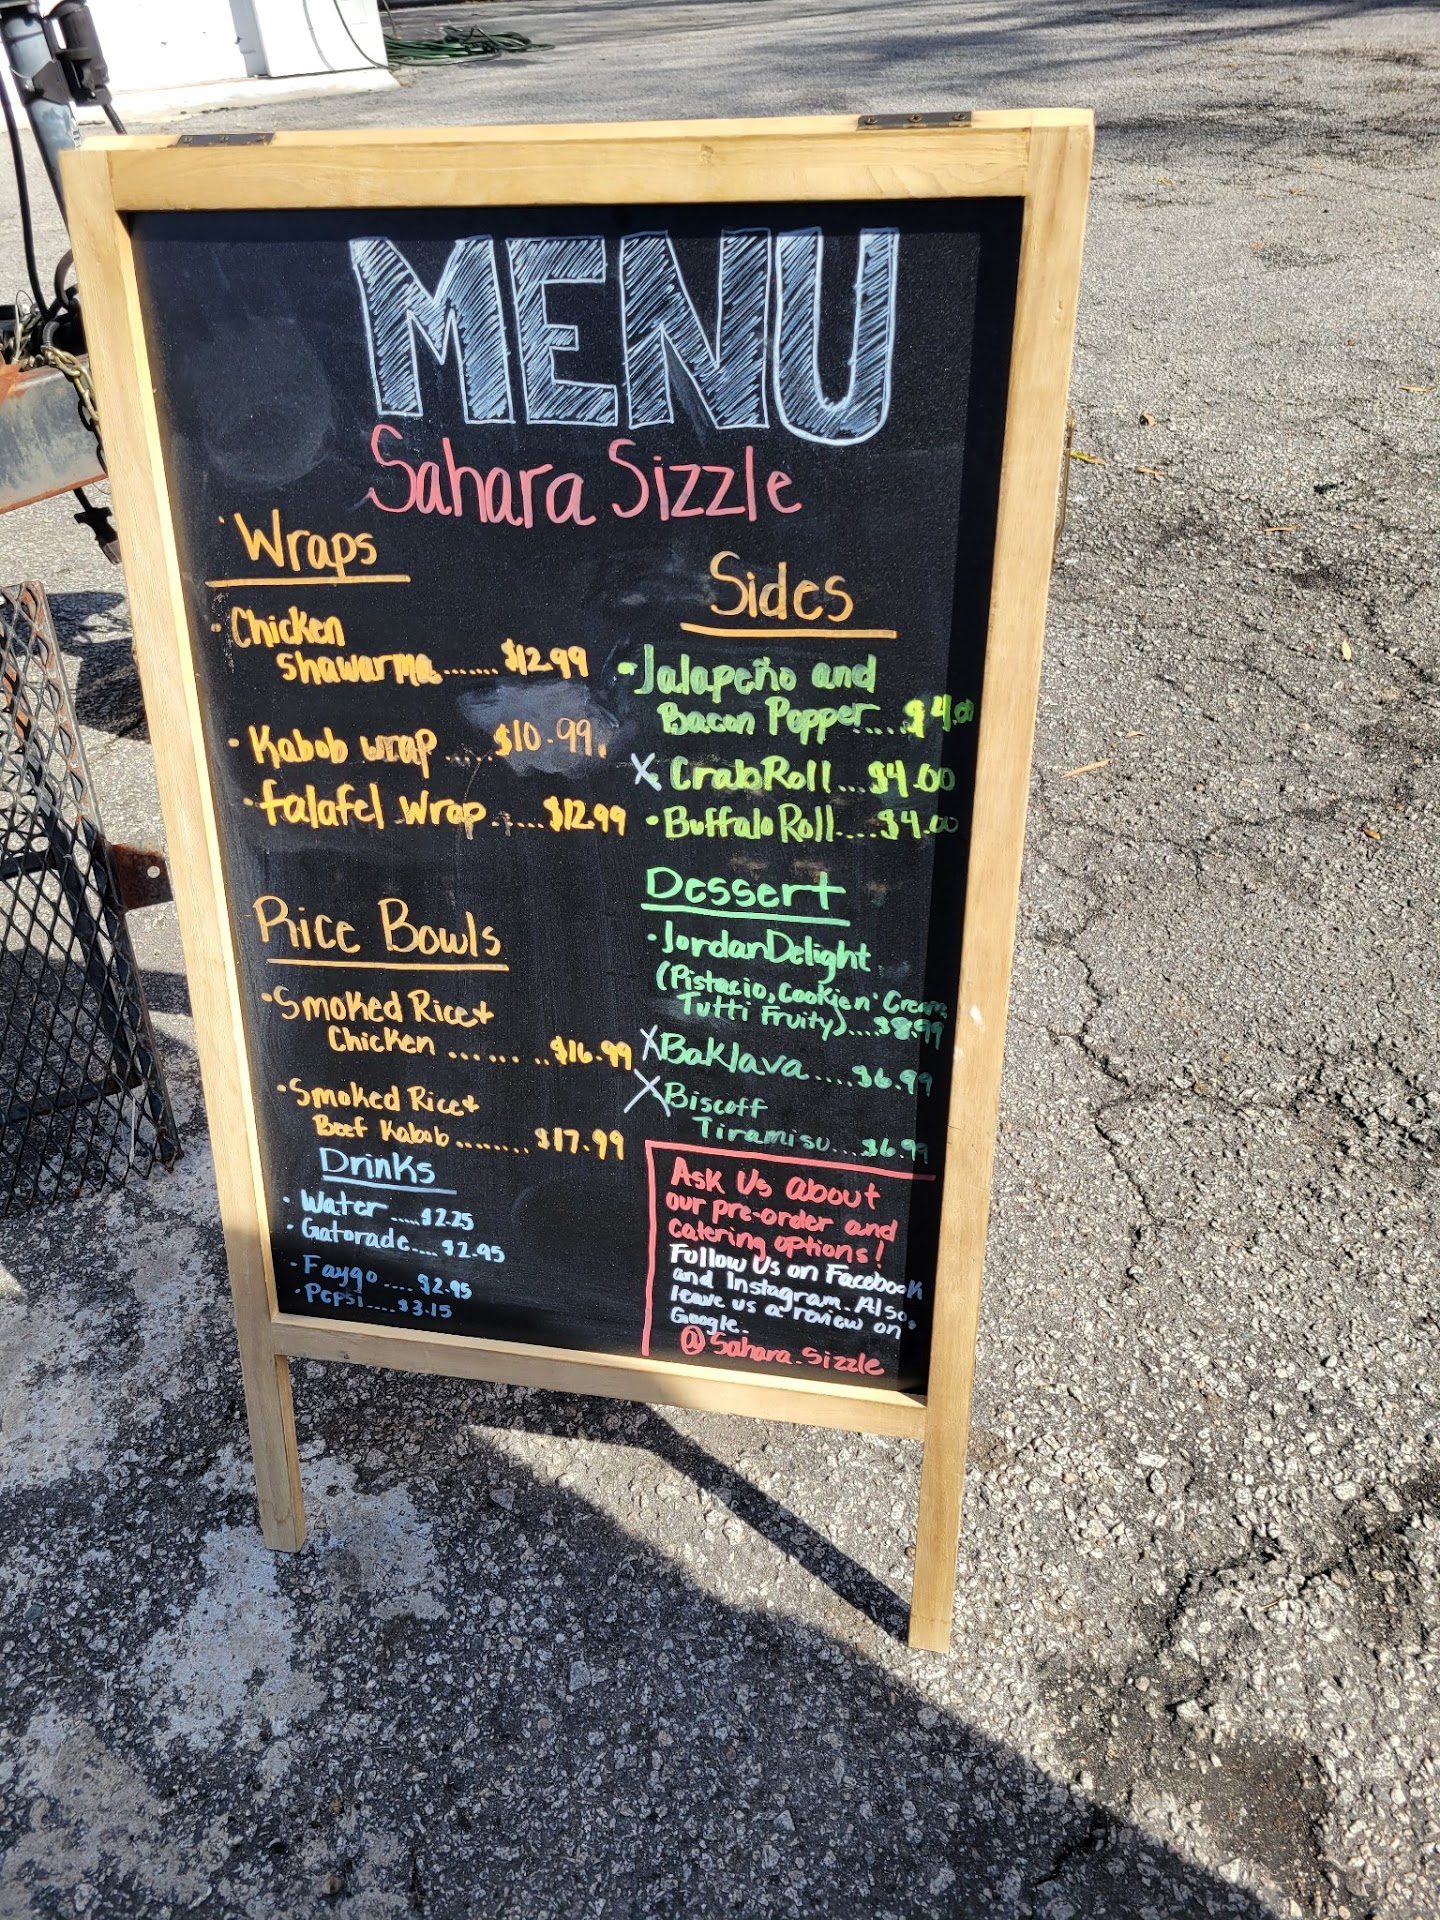 MENU
Sahara Sizzle
Wraps
• Chicken
Shawarma....... $12.99
• Kabob wrap ..... $10.99
• falafel wrap ...... $12.99
Rice Bowls
• Smoked Rice +
Chicken ......... $16.99
• Smoked Rice +
Beef Kabob ........ $17.99
Drinks
• Water .....$2.25
• Gatorade.... $2.95
• Faygo .... $2.95
• Pepsi.... $3.15
Sides
• Jalapeño and
Bacon Popper..... $4.00
X • Crab Roll... $4.00
• Buffalo Roll.... $4.00
Dessert
• Jordan Delight
(Pistacio, Cookie n' Cream
Tutti Fruity)....$8.99
X Baklava..... $6.99
X Biscoff
Tiramisu... $6.99
Ask Us about
our pre-order and
catering options!
Follow Us on Facebook
and Instagram. Also,
leave us a review on
Google.
@Sahara.Sizzle